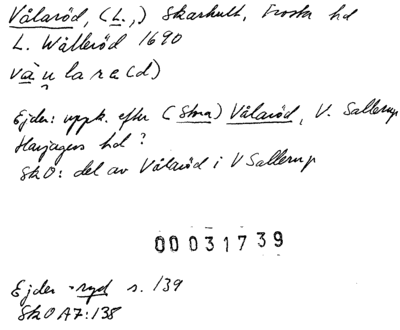 Vålaröd, (L.,) Skarhult, Frosta hd
L. Wålleröd 1690
và n la re(d)
Ejder: uppk. efter (Stora) Vålaröd, V. Sallerup
Harjagers hd?
SkO: del av Vålaröd i V Sallerup
00031739
Ejder -ryd s. 139
SkO A7:138